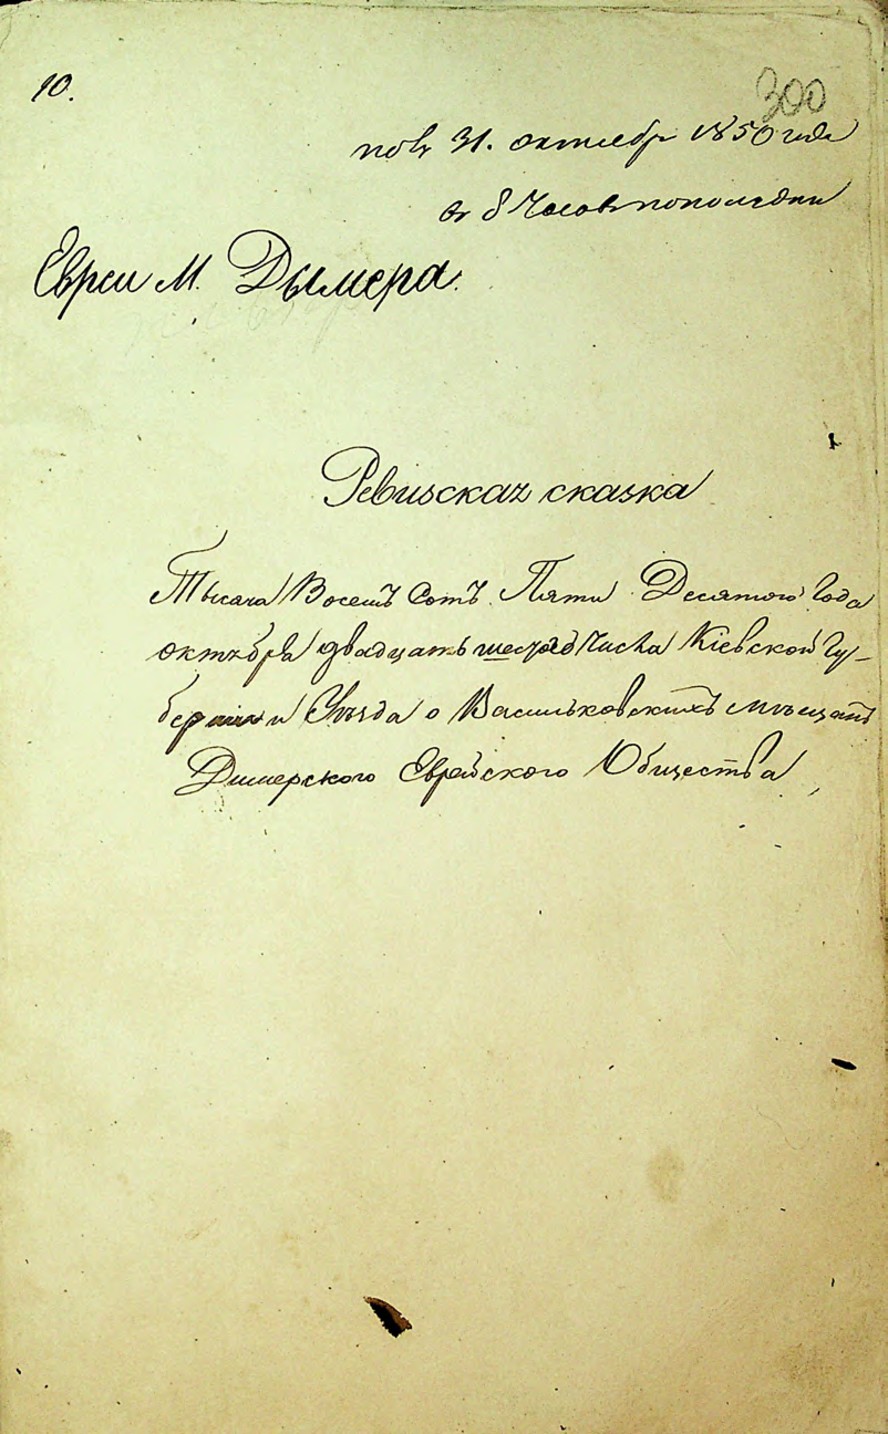 10.
300
31. октября 1850 года
в 8 Часов пополудни
Евреи М. Дымера.
Ревизская сказка
Тысяча Восемъ Сотъ Пяти Десятого Года
октября двадцать числа Кіевской Гу-
берніи о Васильковскихъ мъщанъ
Димерского Еврейского Общества